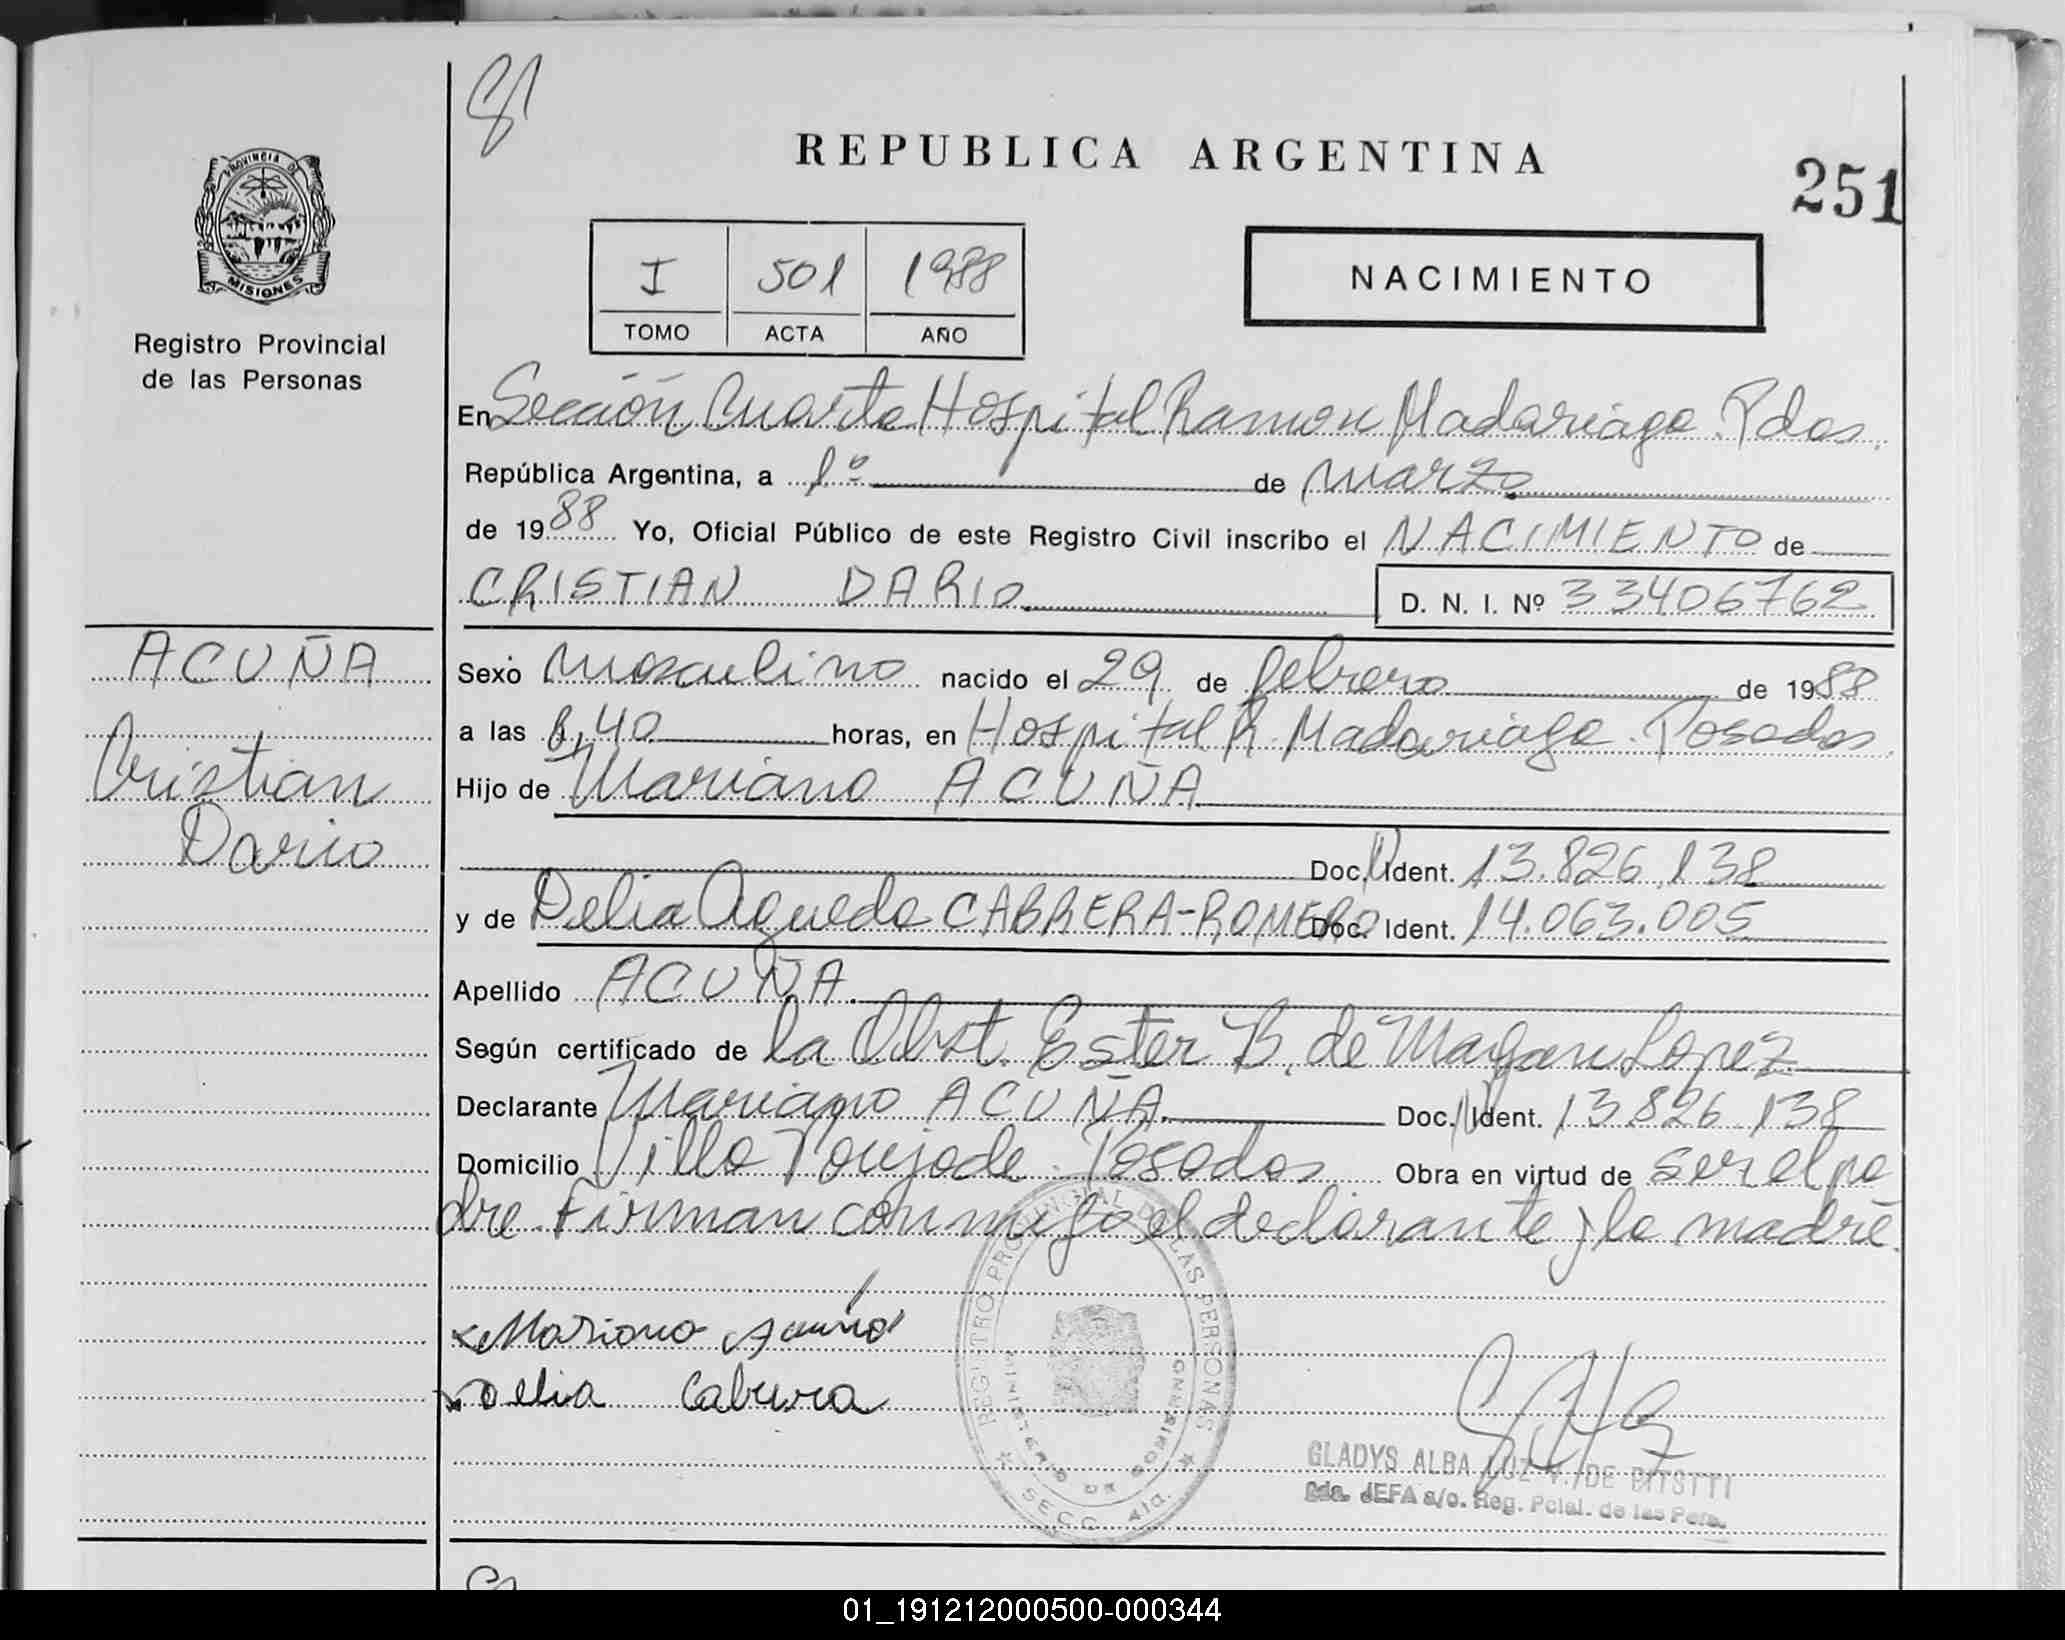 REPUBLICA ARGENTINA
251
PROVINCIA DE
MISIONES
Registro Provincial
de las Personas
I 501 1988
TOMO ACTA AÑO
NACIMIENTO
En Sección Cuarta Hospital Ramon Madariaga. Pdas.
República Argentina, a 1º de marzo
de 1988 Yo, Oficial Público de este Registro Civil inscribo el NACIMIENTO de
CRISTIAN DARIO D. N. I. Nº 33406762
ACUÑA
Cristian
Dario
Sexo masculino nacido el 29 de febrero de 1988
a las 6,40 horas, en Hospital R. Madariaga. Posadas.
Hijo de Mariano ACUÑA
Doc. Ident. 13.826.138
y de Delia Agueda CABRERA-ROMERO Doc. Ident. 14.063.005
Apellido ACUÑA.
Según certificado de la Obst. Ester B. de Magan Lopez
Declarante Mariano ACUÑA. Doc. Ident. 13.826.138
Domicilio Villa Poujade. Posadas Obra en virtud de ser el pa
dre. Firman conmigo el declarante y la madre.
Mariano Acuña
Delia Cabrera
REGISTRO PROVINCIAL DE LAS PERSONAS
MINISTERIO DE GOBIERNO
SECC. 4ta.
GLADYS ALBA LUZ V. DE
2da. JEFA a/c. Reg. Pcial. de las Pers.
01_191212000500-000344